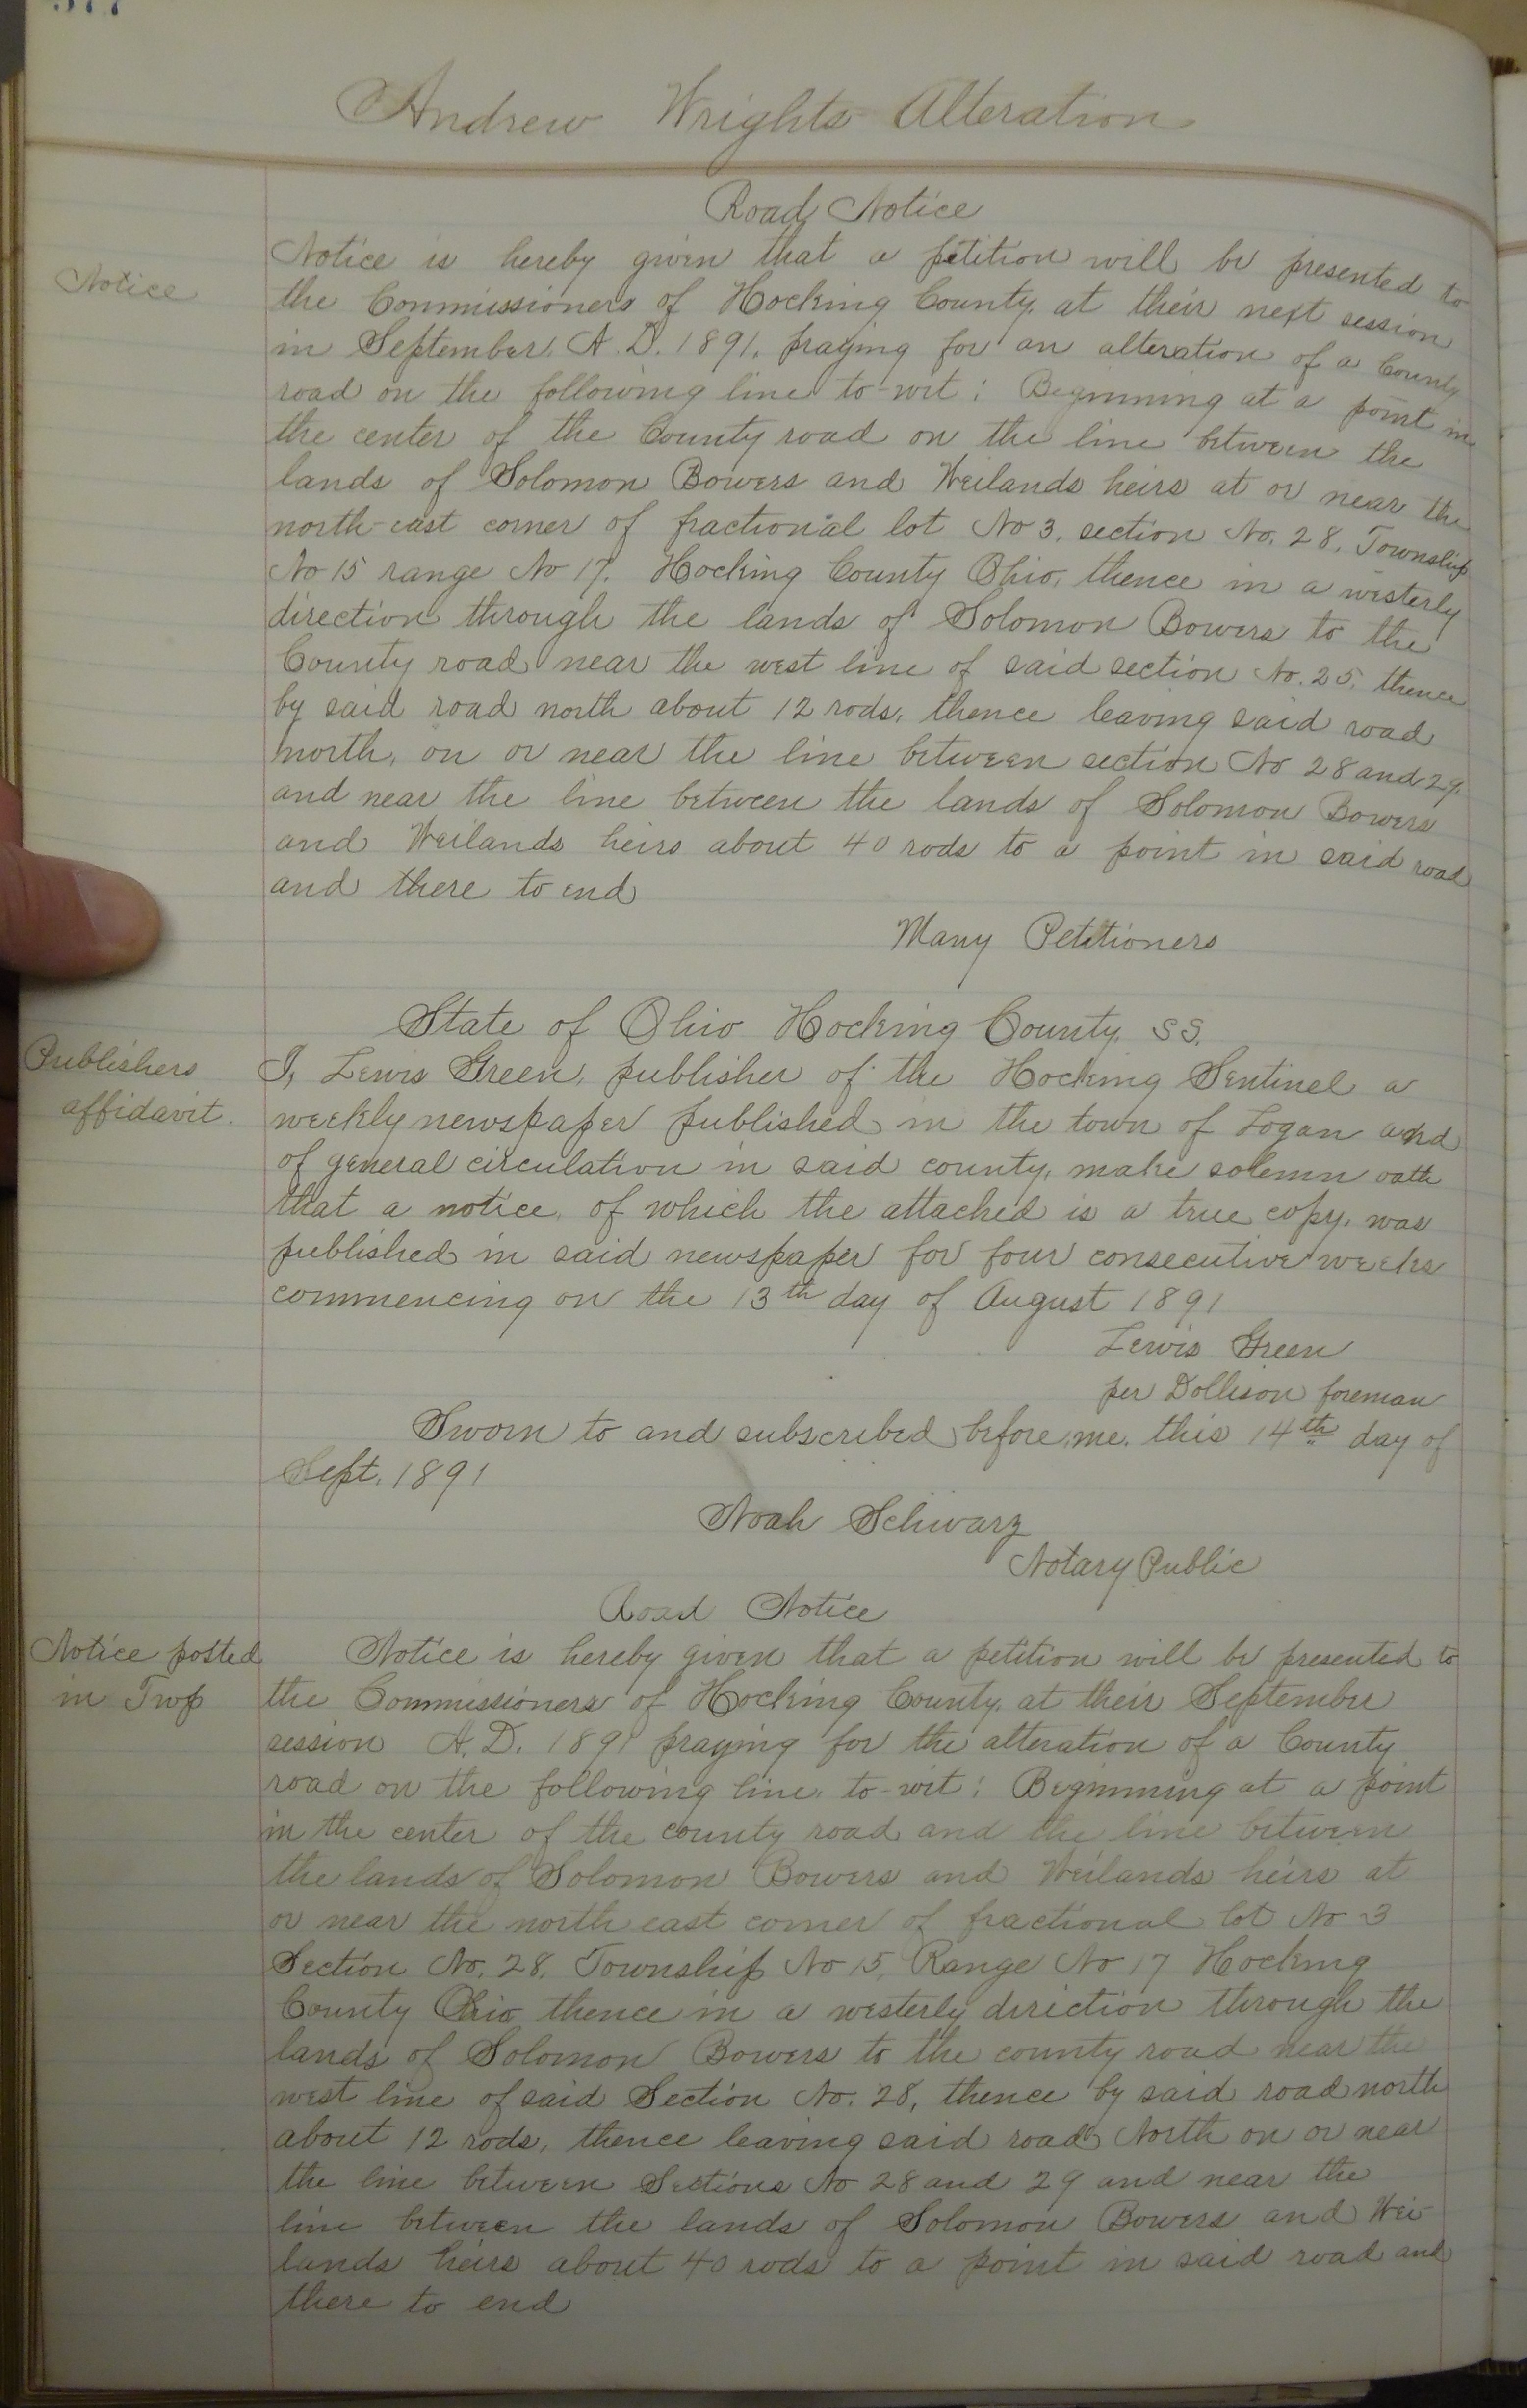 Andrew Wrights Alteration
Road Notice
Notice
Notice is hereby given that a petition will be presented to
the Commissioners of Hocking County, at their next session
in September, A.D. 1891, praying for an alteration of a County
road on the following line to-wit: Beginning at a point in
the center of the County road on the line between the
lands of Solomon Bowers and Weilands heirs at or near the
north-east corner of fractional lot No 3, section No. 28, Township
No 15 range No 17. Hocking County Ohio, thence in a westerly
direction through the lands of Solomon Bowers to the
County road near the west line of said section No. 25, thence
by said road north about 12 rods, thence leaving said road
north, on or near the line between section No 28 and 29,
and near the line between the lands of Solomon Bowers
and Weilands heirs about 40 rods to a point in said road
and there to end
Many Petitioners
State of Ohio Hocking County, SS.
Publishers
affidavit.
I, Lewis Green, publisher of the Hocking Sentinel a
weekly newspaper published in the town of Logan and
of general circulation in said county, make solemn oath
that a notice, of which the attached is a true copy, was
published in said newspaper for four consecutive weeks
commencing on the 13th day of August 1891
Lewis Green
per Dollison foreman
Sworn to and subscribed before me, this 14th day of
Sept. 1891
Noah Schwarz
Notary Public
Road Notice
Notice posted
in Twp
Notice is hereby given that a petition will be presented to
the Commissioners of Hocking County, at their September
session A.D. 1891 praying for the alteration of a County
road on the following line, to-wit: Beginning at a point
in the center of the county road and the line between
the lands of Solomon Bowers and Weilands heirs at
or near the north east corner of fractional lot No 3
Section No. 28, Township No 15, Range No 17 Hocking
County Ohio thence in a westerly direction through the
lands of Solomon Bowers to the county road near the
west line of said Section No. 28, thence by said road north
about 12 rods, thence leaving said road North on or near
the line between Sections No 28 and 29 and near the
line between the lands of Solomon Bowers and Wei-
lands heirs about 40 rods to a point in said road and
there to end